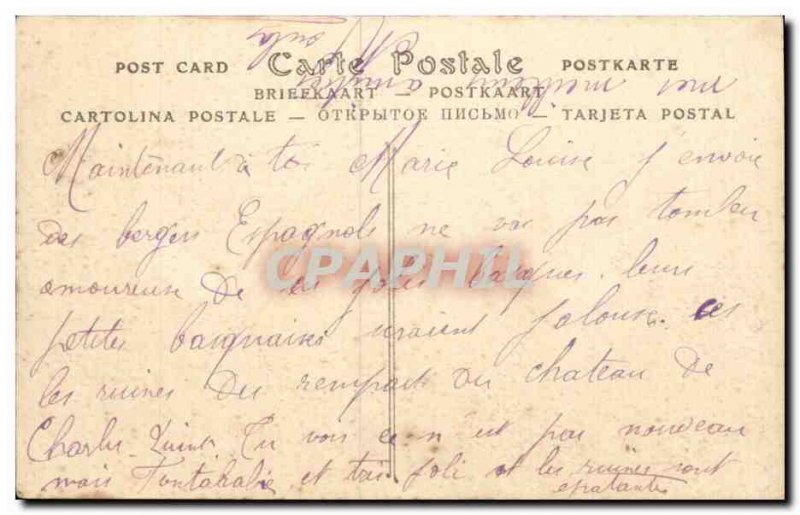 POST CARD Carte Postale POSTKARTE
BRIEFKAART — POSTKAART
CARTOLINA POSTALE — ОТКРЫТОЕ ПИСЬМО — TARJETA POSTAL
Maintenant à toi Marie Louise j'envoie
des bergers Espagnols ne vas pas tomber
amoureuse de ces jolis basques. leurs
petites seraient jalouses. ces
les ruines du rempart ou chateau de
Charles-Quint. Tu vois ce n'est pas nouveau
mais Fontarabie est très joli et les ruines sont
epatantes
mes meilleurs amitiés
CPAPHIL